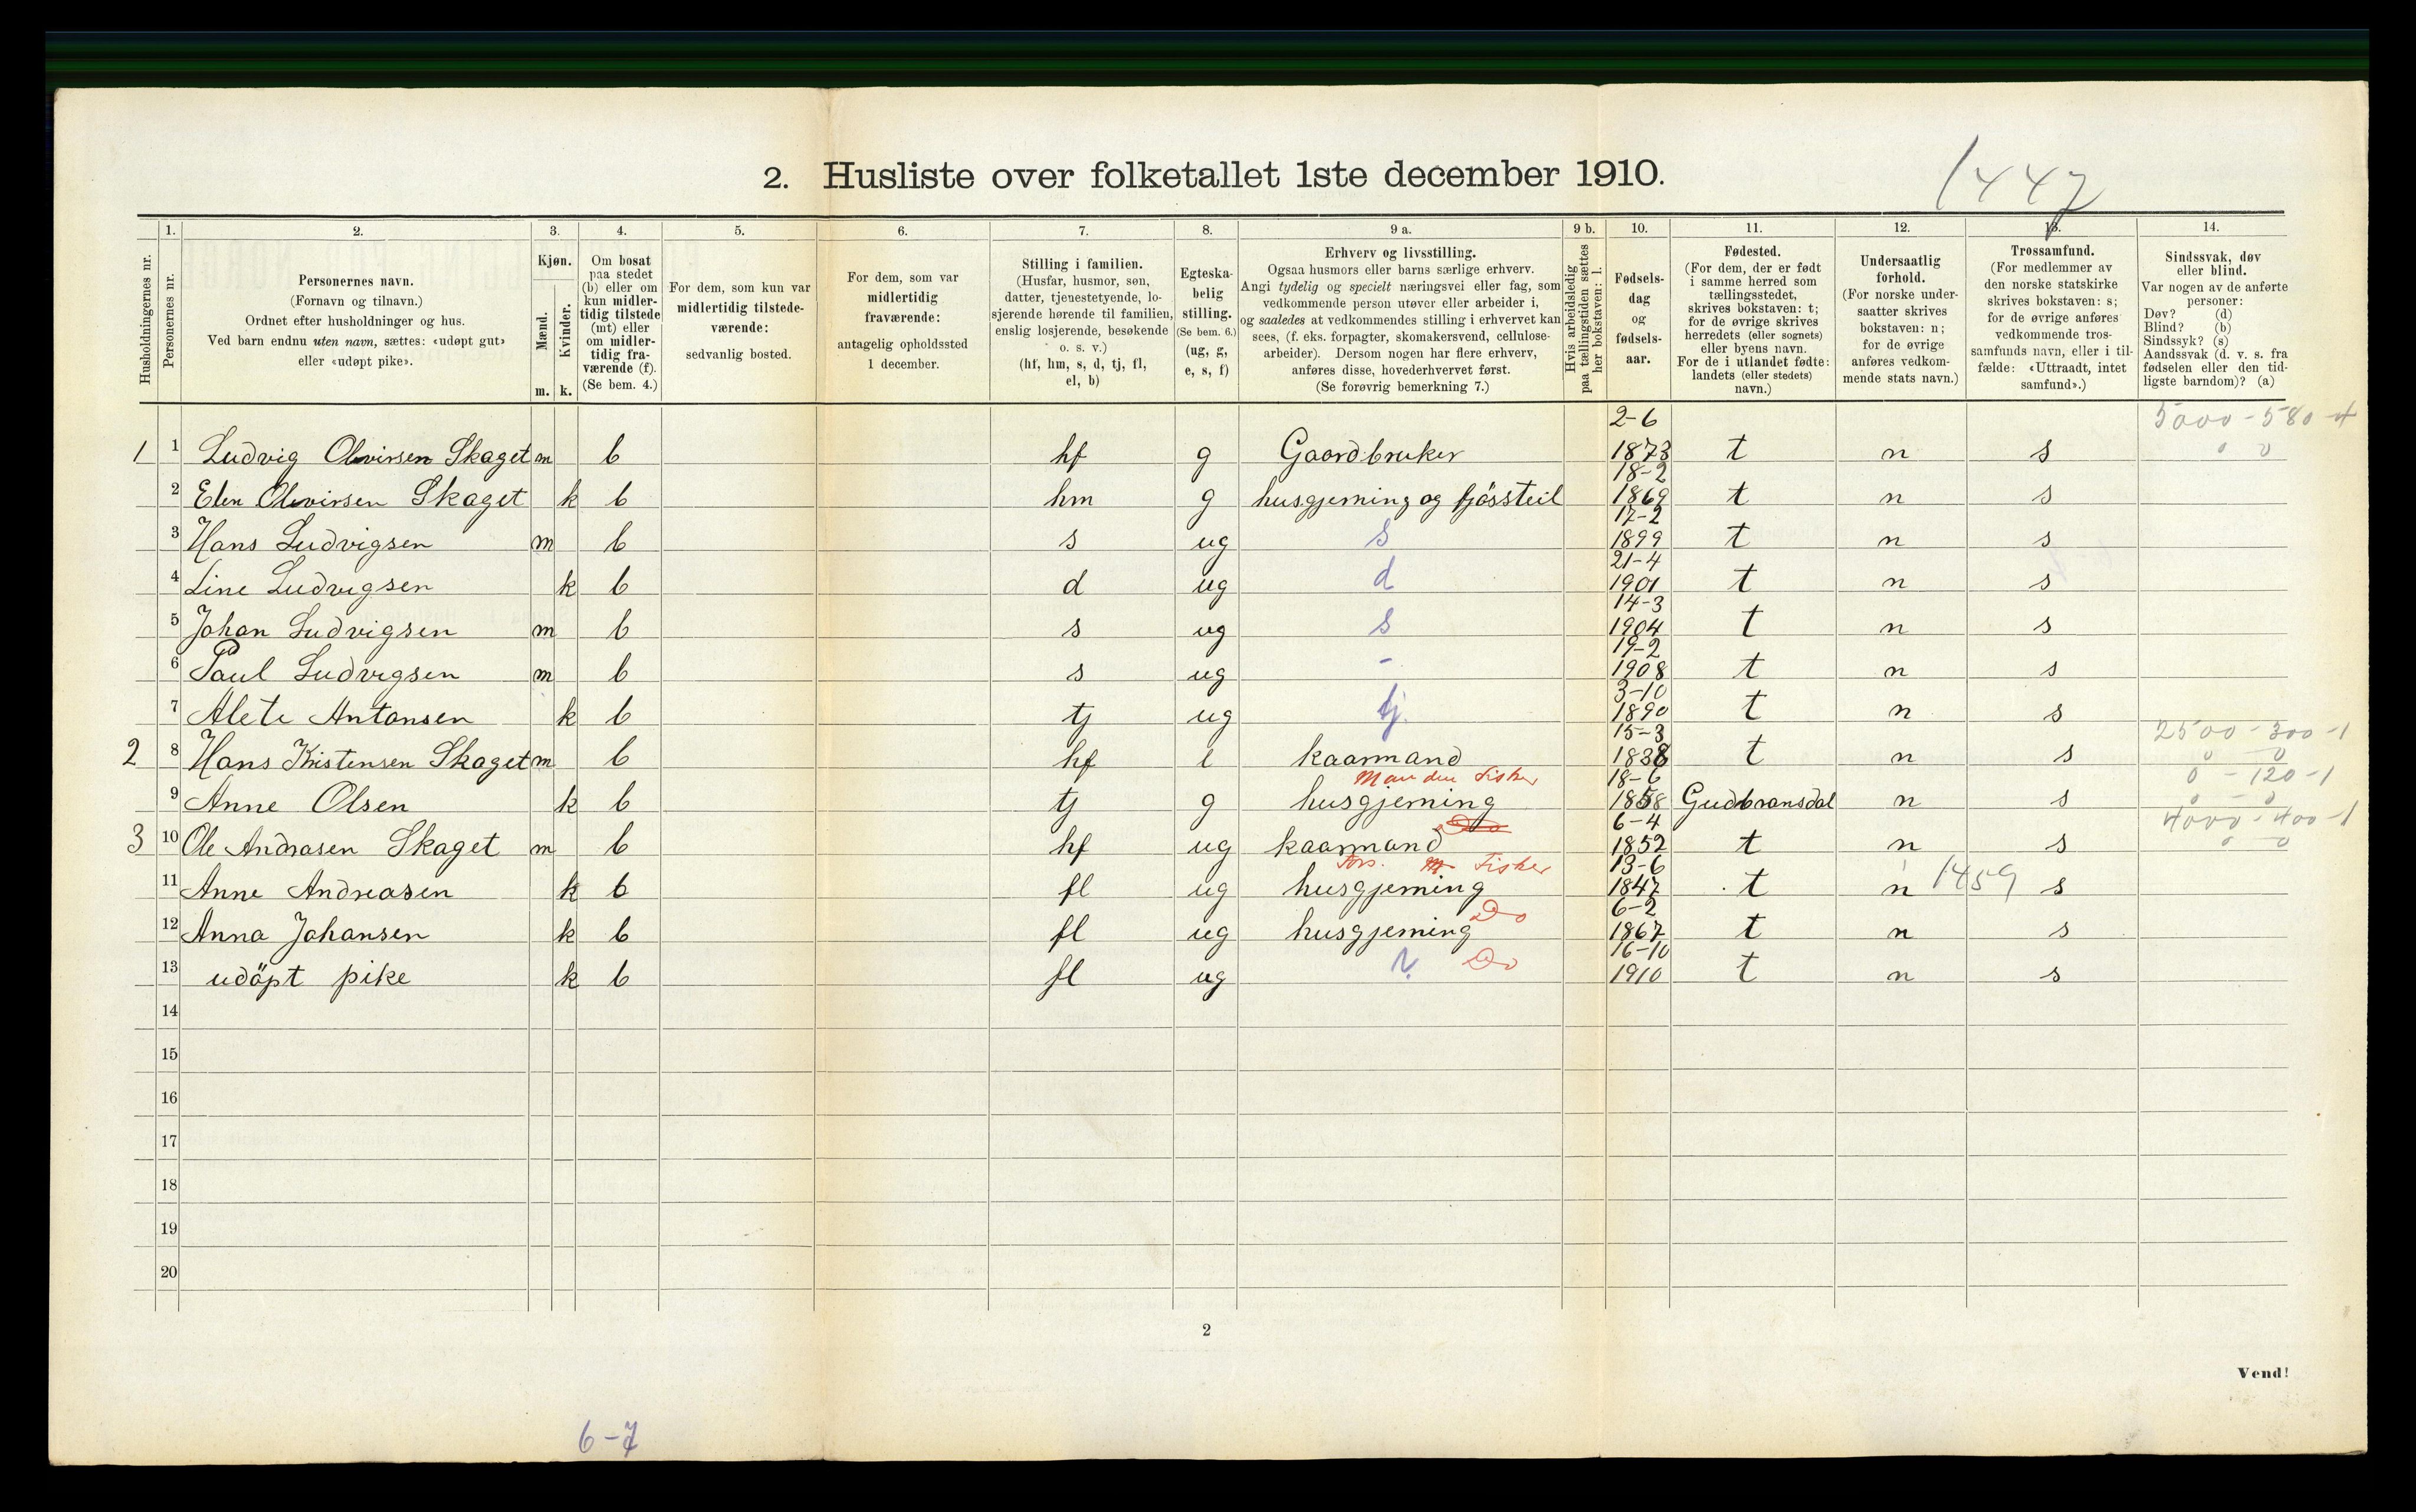 2. Husliste over folketallet 1ste december 1910.
1447
Husholdningernes nr.
1. Personernes nr.
2. Personernes navn. (Fornavn og tilnavn.) Ordnet efter husholdninger og hus. Ved barn endnu uten navn, sættes: «udøpt gut» eller «udøpt pike».
3. Kjøn. Mænd. m. Kvinder. k.
4. Om bosat paa stedet (b) eller om kun midlertidig tilstede (mt) eller om midlertidig fraværende (f). (Se bem. 4.)
5. For dem, som kun var midlertidig tilstedeværende: sedvanlig bosted.
6. For dem, som var midlertidig fraværende: antagelig opholdssted 1 december.
7. Stilling i familien. (Husfar, husmor, søn, datter, tjenestetyende, losjerende hørende til familien, enslig losjerende, besøkende o. s. v.) (hf, hm, s, d, tj, fl, el, b)
8. Egteskabelig stilling. (Se bem. 6.) (ug, g, e, s, f)
9 a. Erhverv og livsstilling. Ogsaa husmors eller barns særlige erhverv. Angi tydelig og specielt næringsvei eller fag, som vedkommende person utøver eller arbeider i, og saaledes at vedkommendes stilling i erhvervet kan sees, (f. eks. forpagter, skomakersvend, cellulosearbeider). Dersom nogen har flere erhverv, anføres disse, hovederhvervet først. (Se forøvrig bemerkning 7.)
9 b. Hvis arbeidsledig paa tællingstiden sættes her bokstaven: l.
10. Fødselsdag og fødselsaar.
11. Fødested. (For dem, der er født i samme herred som tællingsstedet, skrives bokstaven: t; for de øvrige skrives herredets (eller sognets) eller byens navn. For de i utlandet fødte: landets (eller stedets) navn.)
12. Undersaatlig forhold. (For norske undersaatter skrives bokstaven: n; for de øvrige anføres vedkommende stats navn.)
13. Trossamfund. (For medlemmer av den norske statskirke skrives bokstaven: s; for de øvrige anføres vedkommende trossamfunds navn, eller i tilfælde: «Uttraadt, intet samfund».)
14. Sindssvak, døv eller blind. Var nogen av de anførte personer: Døv? (d) Blind? (b) Sindssyk? (s) Aandssvak (d. v. s. fra fødselen eller den tidligste barndom)? (a)
5000-580-4
0 0
1 1 Ludvig Olvirsen Skaget m b hf g Gaardbruker 2-6 1873 t n s
2 Elen Olevirsen Skaget k b hm g husgjerning og fjössteil 18-2 1869 t n s
3 Hans Ludvigsen m b s ug s 17-2 1899 t n s
4 Line Ludvigsen k b d ug d 21-4 1901 t n s
5 Johan Ludvigsen m b s ug s 14-3 1904 t n s
6 Paul Ludvigsen m b s ug - 19-2 1908 t n s
7 Alete Antonsen k b tj ug tj. 3-10 1890 t n s
2 8 Hans Kristensen Skaget m b hf e kaarmand 15-3 1838 t n s 2500-300-1
0 0
Manden Fisker
9 Anne Olsen k b tj g husgjerning 18-6 1858 Gudbransdal n s 0-120-1
0-0
3 10 Ole Andrasen Skaget m b hf ug kaarmand 6-4 1852 t n s 4000-400-1
0 0
Fisker
11 Anne Andreasen k b fl ug husgjerning 13-6 1847 t n 1459 s
12 Anna Johansen k b fl ug husgjerning Do 6-2 1867 t n s
13 udöpt pike k b fl ug Do 16-10 1910 t n s
14
15
16
17
18
19
20
2
Vend!
6-7